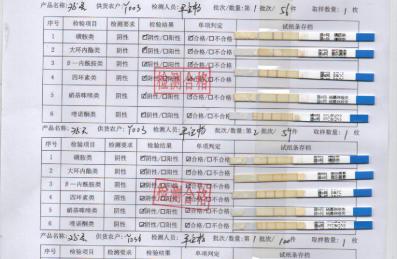 产品名称: 供货农户: Y003 检测人员: 批次/数量:第1批次/ 取样数量:1枚
序号 检验项目 检测要求 检验结果 单项判定 试纸条存档
1 磺胺类 阴性 ☑阴性/□阳性 ☑合格/□不合格
2 大环内酯类 阴性 ☑阴性/□阳性 ☑合格/□不合格
3 β-内酰胺类 阴性 ☑阴性/□阳性 ☑合格/□不合格
4 四环素类 阴性 ☑阴性/□阳性 ☑合格/□不合格
5 硝基呋喃类 阴性 ☑阴性/□阳性 ☑合格/□不合格
6 喹诺酮类 阴性 ☑阴性/□阳性 ☑合格/□不合格
检测合格
产品名称: 供货农户: Y003 检测人员: 批次/数量:第2批次/ 取样数量:1枚
序号 检验项目 检测要求 检验结果 单项判定 试纸条存档
1 磺胺类 阴性 ☑阴性/□阳性 ☑合格/□不合格
2 大环内酯类 阴性 ☑阴性/□阳性 ☑合格/□不合格
3 β-内酰胺类 阴性 ☑阴性/□阳性 ☑合格/□不合格
4 四环素类 阴性 ☑阴性/□阳性 ☑合格/□不合格
5 硝基呋喃类 阴性 ☑阴性/□阳性 ☑合格/□不合格
6 喹诺酮类 阴性 ☑阴性/□阳性 ☑合格/□不合格
检测合格
产品名称: 供货农户: 检测人员: 批次/数量:第1批次/ 取样数量:1枚
序号 检验项目 检测要求 检验结果 单项判定 试纸条存档